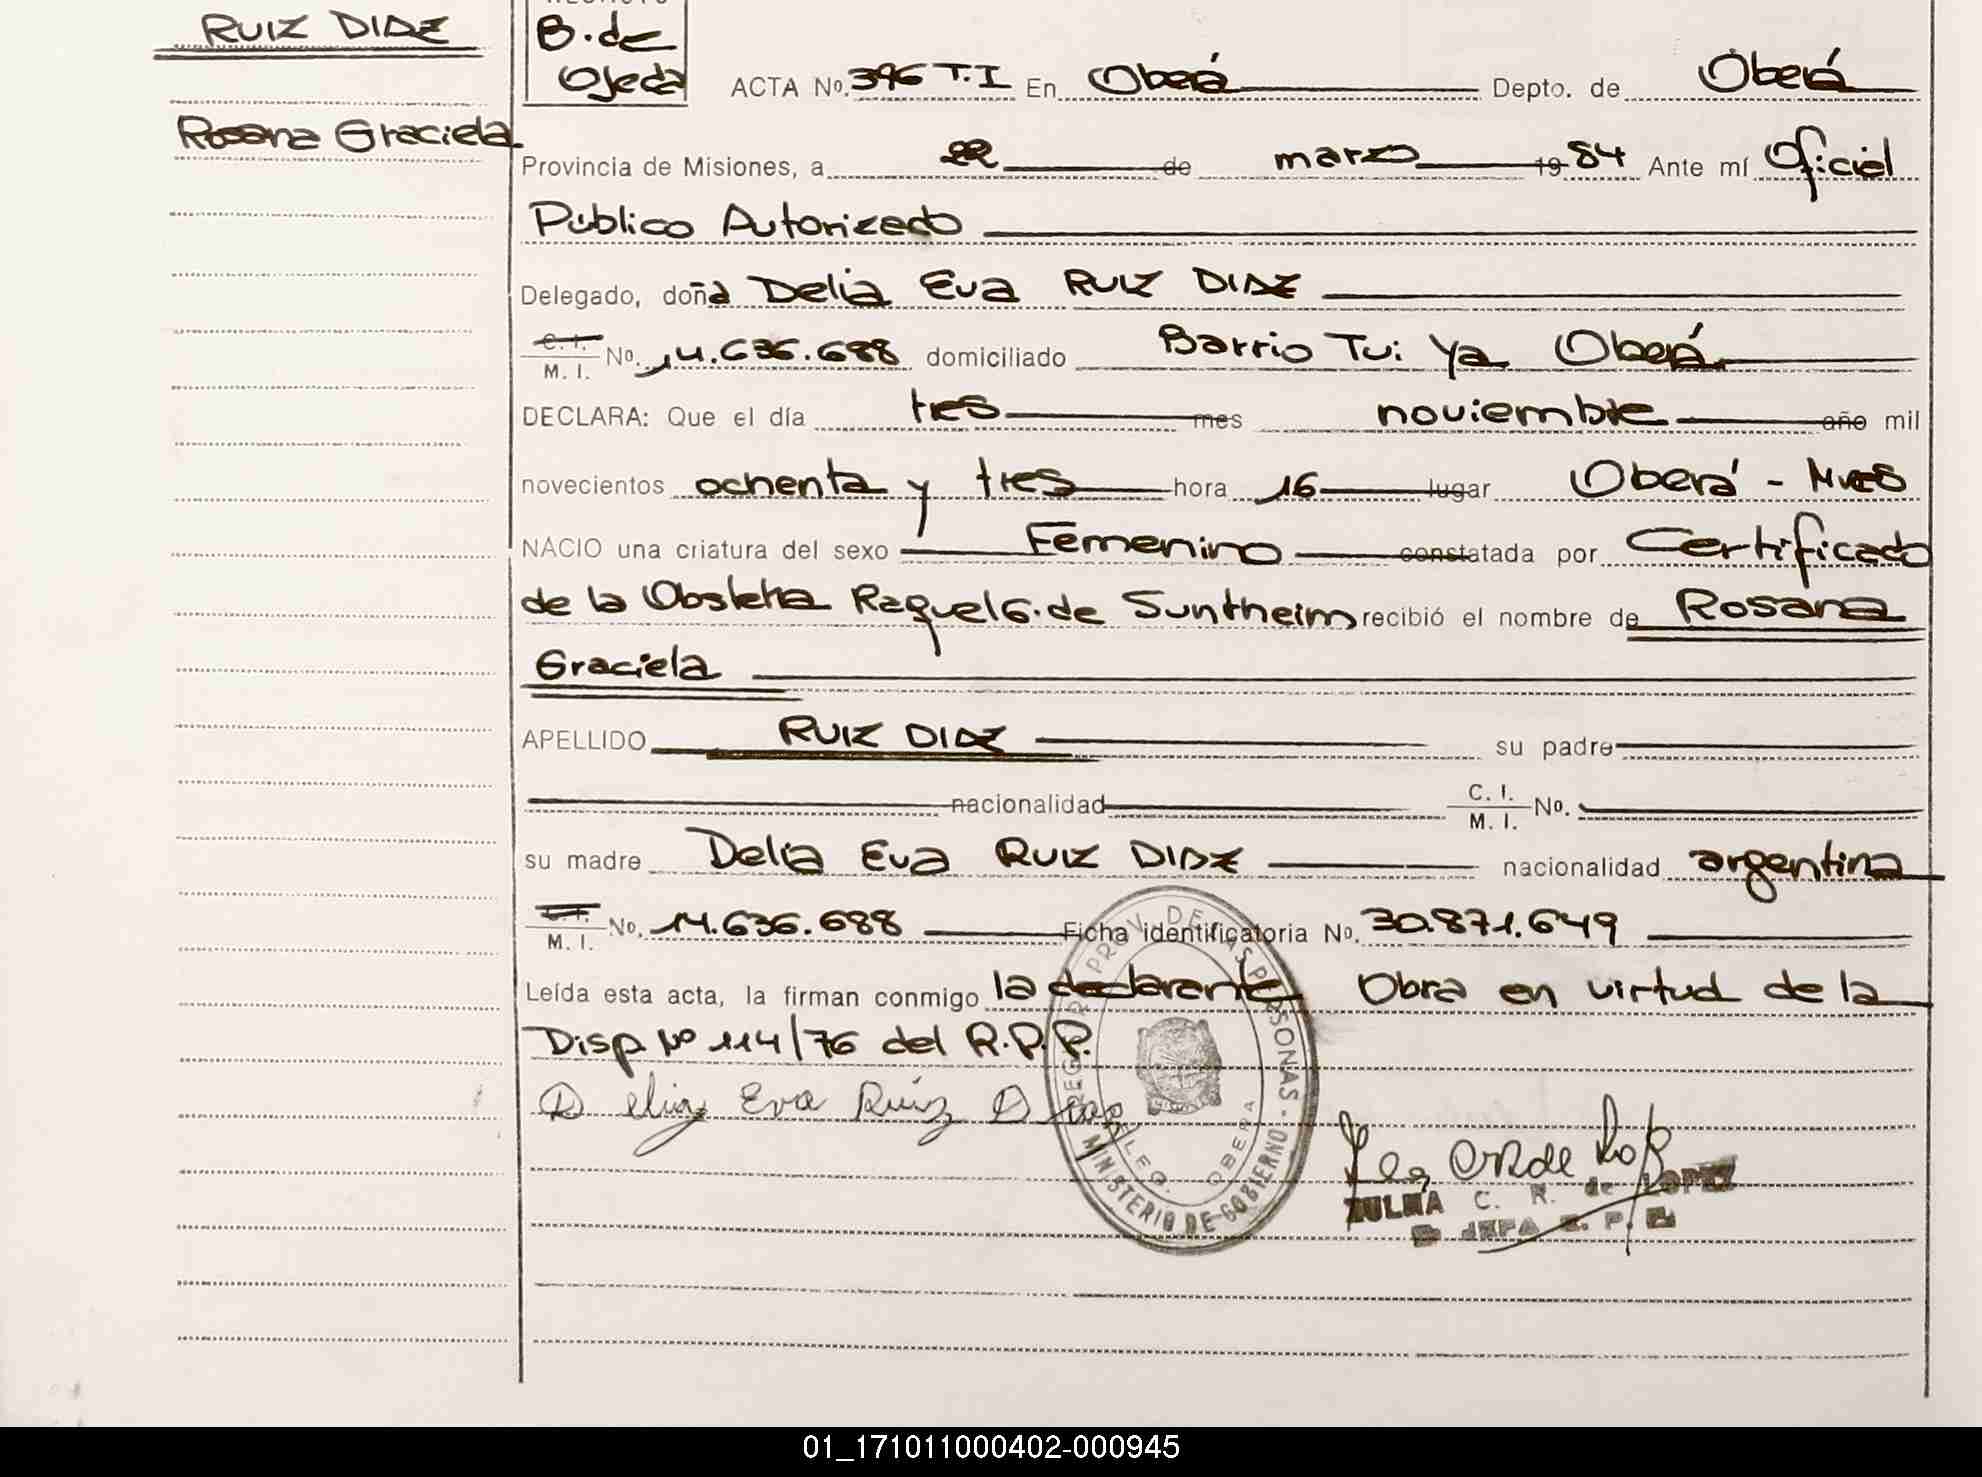 RUIZ DIAZ
Rosana Graciela
B. de
Ojeda
ACTA No. 396 T.I En Oberá Depto. de Oberá
Provincia de Misiones, a 22 de marzo 1984 Ante mí Oficial
Público Autorizado
Delegado, doña Delia Eva RUIZ DIAZ
C. I. M. I. No. 14.636.688 domiciliado Barrio Tui Ya Oberá
DECLARA: Que el día tres mes noviembre año mil
novecientos ochenta y tres hora 16 lugar Oberá - Mnes
NACIO una criatura del sexo Femenino constatada por Certificado
de la Obstetra Raquel G. de Suntheim recibió el nombre de Rosana
Graciela
APELLIDO RUIZ DIAZ su padre
nacionalidad C. I. M. I. No.
su madre Delia Eva RUIZ DIAZ nacionalidad argentina
C. I. M. I. No. 14.636.688 Ficha identificatoria No. 30.871.649
Leída esta acta, la firman conmigo la declarante Obra en virtud de la
Disp. Nº 114/76 del R.P.P.
Delia Eva Ruiz Diaz
REG. PROV. DE LAS PERSONAS - MINISTERIO DE GOBIERNO
DELEG. OBERA
ZULMA C. R. de LOPEZ
JEFA
01_171011000402-000945